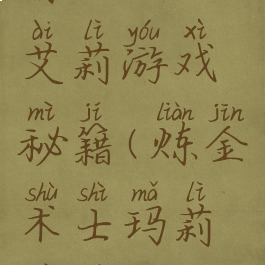 ài lì yóu xì
艾莉游戏
mì jí liàn jīn
秘籍(炼金
shù shì mǎ lì
术士玛莉